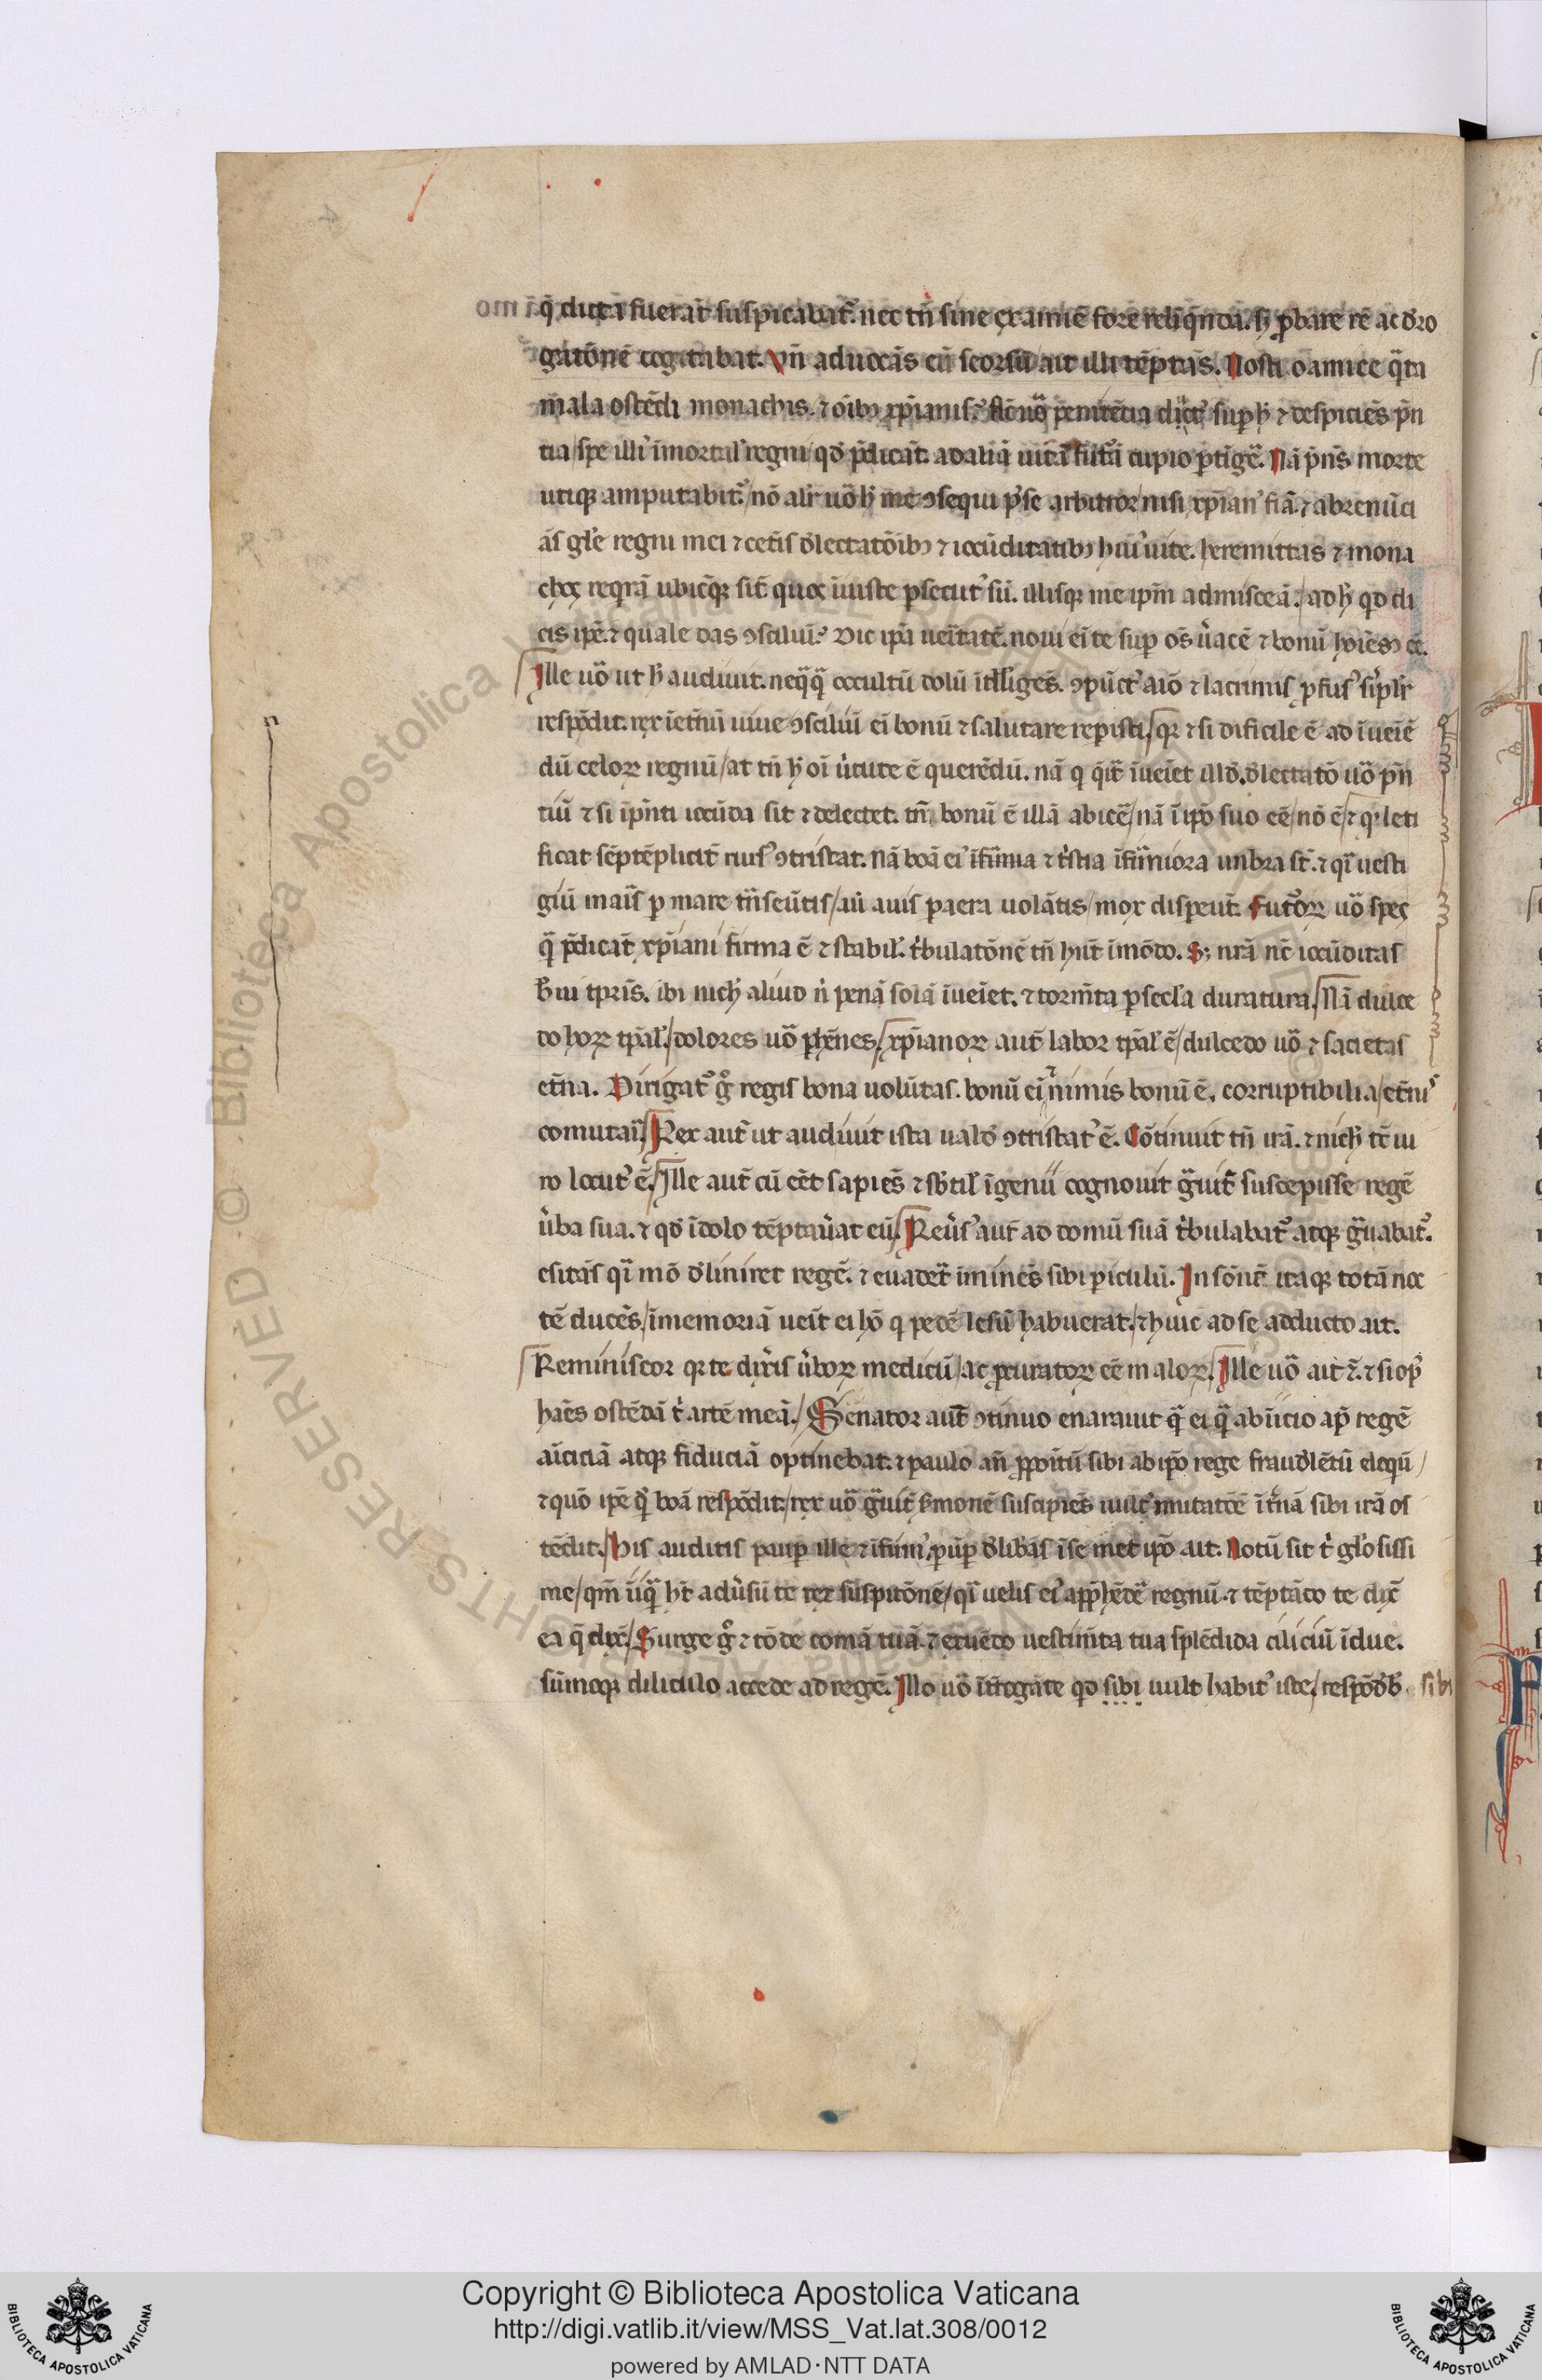 q̄ dicta fuerāt suspicabat᷒. nec tn̄ sine examīe fore relīq̄nda. sꝫ ꝓbare rē ac d̓ro
gatōnē cogitabat. Vn̄ aduocās eū seorsū ait illi tēptās. Nosti o amice q̄ta
mala ostēdi monachis. ⁊ oībꝫ xp̄ianis.
tia/ spe illi᷒ īmortal᷒ regni/ qd̓ p̄dicāt. ad aliā uitā futurā cupio ꝑtīgē. Nā p̄ns morte
utiqꝫ amputabit᷒./ nō alit᷒ uō h̓ me ꝯsequi posse arbitror nisi xp̄ian᷒ fiā. ⁊ abrenūci
ās gl̓e regni mei ⁊ cet̓is d̓lectatōibꝫ ⁊ iocūditatibꝫ hui᷒ uite. heremittas ⁊ mona
chos reqrā ubicūqꝫ sīt quos īiuste ꝑsecut᷒ sū. illisqꝫ me ipm̄ admisceā./ ad h̓ qd̓ di
cis ip̄e. ⁊ quale das ꝯsiliuī.᷒ Dic ip̄a ueritatē. noui eī te suꝑ oēs u̓acē ⁊ bonū hoīem eē.
Ille uō ut h̓ audiuit. neq̄q̄ occultū dolū ītelligēs. ꝯpūct᷒ aīo ⁊ lacrimis ꝑfus᷒ sīplr̄
respōdit. rex īet̓nū uiue ꝯsiliuī eī bonū ⁊ salutare repisti/ qꝛ ⁊ si dificile ē ad īueīē
dū celoꝝ regnū/ at tn̄ h̓ oī u̓tute ē querēdū. nā q q̄rit īueiet illd̓. d̓lectatō uō p̄n
tiū ⁊ si īp̄nti iocūda sit ⁊ delectet. tn̄ bonū ē illā abicē/ nā ī ipō suo eē/ nō ē/ ⁊ qd̓ leti
ficat sēptēpliciť rurs᷒ ꝯtristat. Nā bōa ei᷒ īfirma ⁊ tristia īfirmiora unbra st̄. ⁊ qi uesti
giū nauis ꝑ mare trāseūtis/ aū auis ꝑ aera uolātis/ mox dispeūt. Futuroꝝ uō spes
q̄ p̄dicāt xp̄iani firma ē ⁊ stabil᷒. tribulatōnē tn̄ hn̄t ī mōdo. Sꝫ nr̄a nc̄ iocūditas
breui tp̄ris. ibi nich᷒ aliud n̓ penā solā īueīet. ⁊ torm̄ta ꝑ secl̓a duratura./ Nā dulce
do hoꝝ tp̄al᷒/ dolores uō ꝑhēnes/ xp̄ianoꝝ aut̄ labor tp̄al᷒ ē/ dulcedo uō ⁊ sacietas
et̓na. Dirigat᷒ g̊ regis bona uolūtas. bonū eī nimis bonū ē. corruptibilia/ et̓nis
comutari/ Rex aut̄ ut audiuit ista uald̓ ꝯtristat᷒ ē. Cōtinuit tn̄ irā. ⁊ nich᷒ tc̄ ui
ro locut᷒ ē./ Ille aut̄ cū eēt sapiēs ⁊ sbtil᷒ īgenii cognouit grauit᷒ suscepisse regē
u̓ba sua. ⁊ qd̓ ī dolo tēptau̓at eū/ Reu̓s᷒ aut̄ ad domū suā tribulabat᷒ atqꝫ grauabat᷒.
esitās qi mō d̓liniret regē. ⁊ euadet᷒ īminēs sibi ꝑiculū. Insōnē itaqꝫ totā noc
tē ducēs/ ī memoriā ueīt ei hō q pedē lesū habuerat/ ⁊ huic ad se adducto ait.
Reminiscor qꝛ te dixis u̓boꝝ medicū/ ac ꝓcuratorē eē maloꝝ/ Ille uō ait ē. ⁊ si op᷒
haēs ostēdā t̓ artē meā./ Senator aut̄ ꝯtinuo enarauit q̄ ei q̄ ab īitio ap̄ regē
amiciciā atqꝫ fiduciā optinebat. ⁊ paulo an̄ ꝓpoitū sibi ab ipō rege fraud̓lētū eloqū/
⁊ quō ip̄e q̓ boā respōdit/ rex uō grauit᷒ s̓monē suscipiēs uult᷒ mutatōe īt̓nā sibi irā os
tēdit./ His auditis pauꝑ ille ⁊ īfirm᷒ d̓libās ī semet ipō ait. Notū sit t̓ gl̓osissi
me/ qm̄ iiq̄ ht̄ adu̓sū te rex suspitōnē/ qi uelis ei᷒ appͪēdē regnū. ⁊ tēptādo te dix̄
ea q̄ dix̄/ Surge g̊ ⁊ tōde comā tuā. ⁊ exuēdo uestim̄ta tua splēdida ciliciū īdue.
sūmoqꝫ diliculo accede ad regē. Illo uō īt̓rogāte qd̓ sibi uult habit᷒ iste/ respōd̓b sibi
Copyright © Biblioteca Apostolica Vaticana
http://digi.vatlib.it/view/MSS_Vat.lat.308/0012
powered by AMLAD·NTT DATA